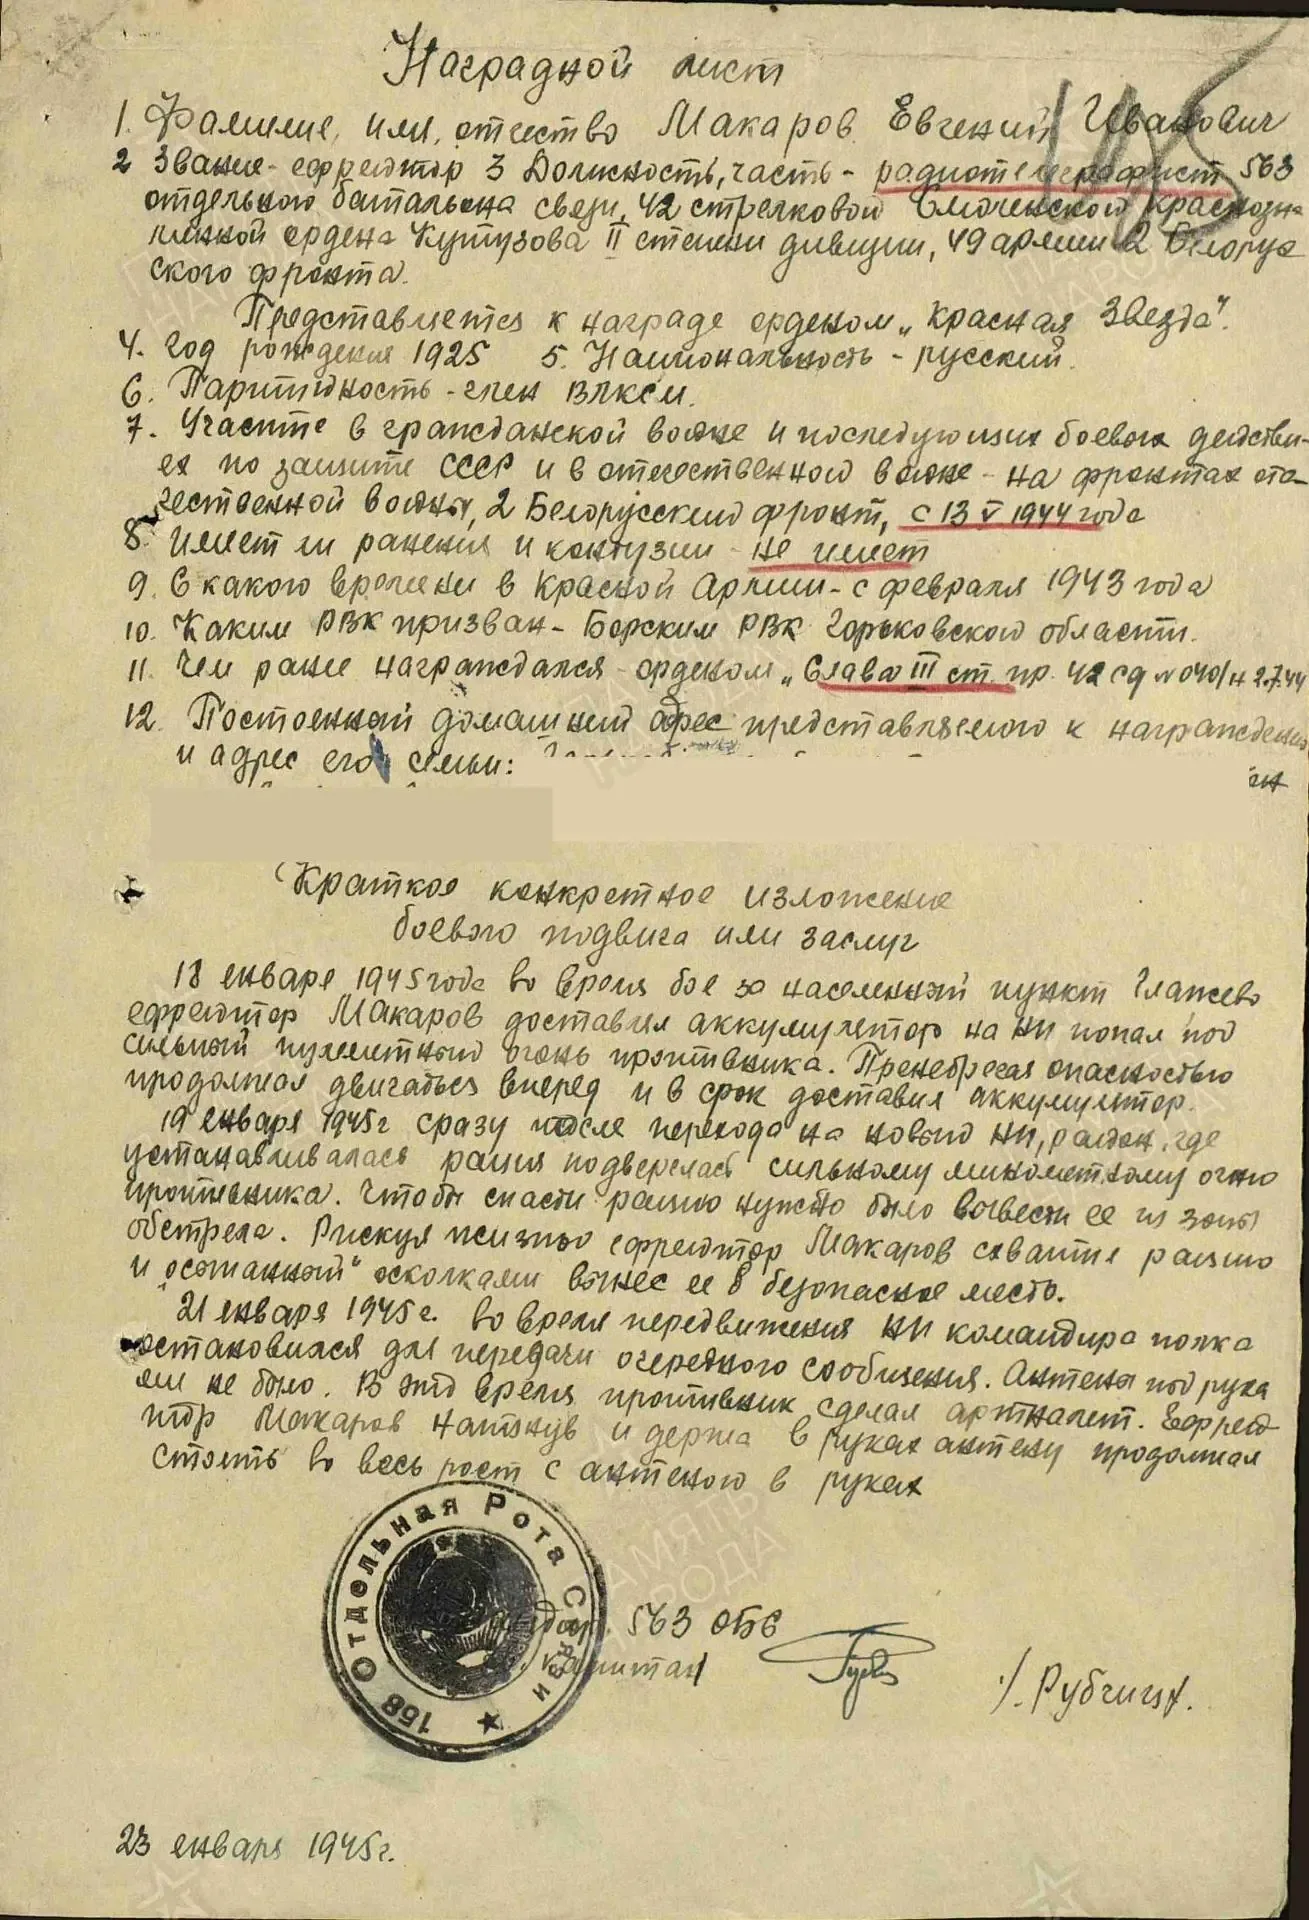 Наградной лист
1. Фамилие, имя, отчество Макаров Евгений Иванович
2 Звание - ефрейтор 3 Должность, часть - радиотелеграфист 563
отдельного батальона связи, 42 стрелковой Смоленской краснозна-
менной ордена Кутузова II степени дивизии, 49 армии 2 Белорус
ского фронта.
Представляется к награде орденом „Красная Звезда".
4. Год рождения 1925 5. Национальность - русский.
6. Партийность - член ВЛКСМ.
7. Участие в гражданской войне и последующих боевых действи-
ях по защите СССР и в отечественной войне - на фронтах оте-
чественной войны, 2 Белорусский фронт, с 13 V 1944 года
8. Имеет ли ранения и контузии - не имеет
9. С какого времени в Красной Армии - с февраля 1943 года
10. Каким РВК призван - Борским РВК Горьковской области.
11. Чем ранее награждался - орденом „Слава III ст. пр. 42 сд № 040/н 2.7.44
12. Постоянный домашний адрес представляемого к награждению
и адрес его семьи:
Краткое конкретное изложение
боевого подвига или заслуг
18 января 1945 года во время бое за населенный пункт Глажево
ефрейтор Макаров доставляя аккумулятор на НП попал под
сильный пулеметный огонь противника. Пренебрегая опасностью
продолжал двигаться вперед и в срок доставил аккумулятор.
19 января 1945 г сразу после перехода на новый НП, район, где
устанавливалась рация подверглась сильному минометному огню
противника. Чтобы спасти рацию нужно было вывести ее из зоны
обстрела. Рискуя жизнью ефрейтор Макаров схватил рацию
и осыпанный осколками вынес ее в безопасное место.
21 января 1945 г. во время передвижения НП командира полка
остановился для передачи очередного сообщения. Антены под рука
ми не было. В это время противник сделал артналет. Ефрей
тор Макаров натянув и держа в руках антену продолжал
стоять во весь рост с антеною в руках
158 Отдельная Рота Связи
563 ОБС
капитан
/. Рубчиц/.
23 января 1945 г.